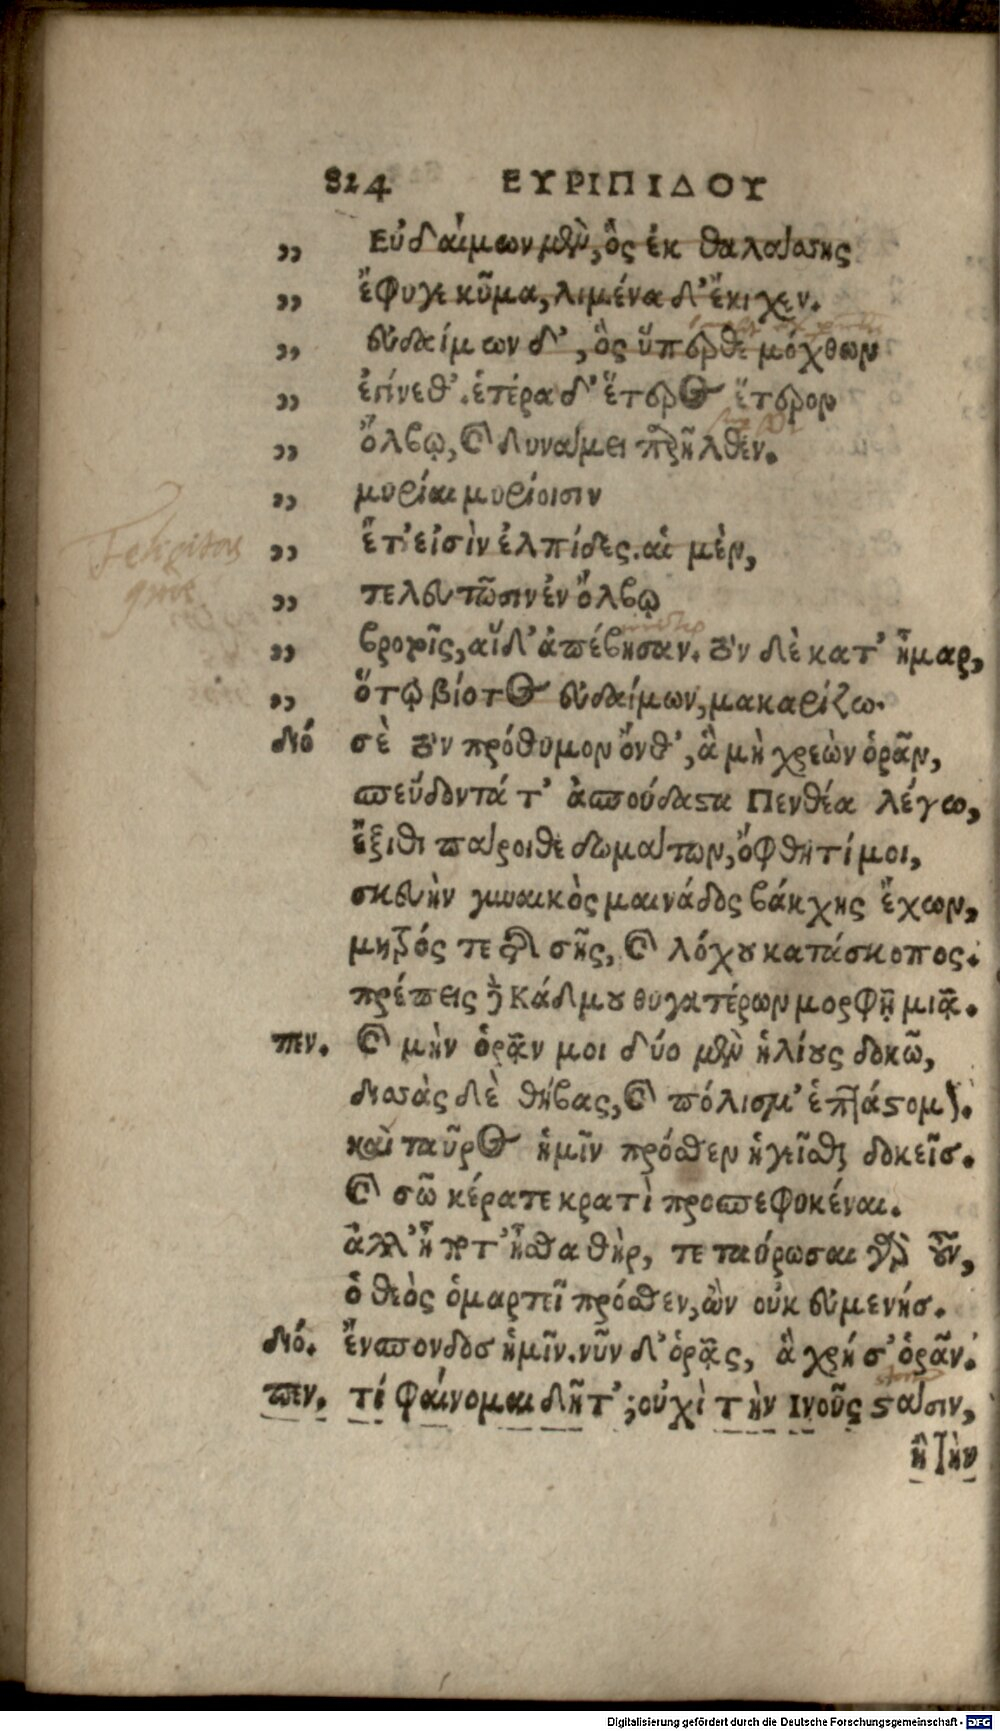 824 ΕΥΡΙΠΙΔΟΥ
„ Εὐδαίμων μὲν, ὃς ἐκ θαλάσσης
„ ἔφυγε κῦμα, λιμένα δ' ἔκιχεν.
„ εὐδαίμων δ', ὃς ὕπερθε μόχθων
„ ἐγένεθ'. ἑτέρα δ' ἕτερος ἕτερον
„ ὄλβῳ, καὶ δυνάμει παρῆλθεν.
„ μυρίαι μυρίοισιν
„ ἔτ' εἰσὶν ἐλπίδες. αἱ μὲν,
„ τελευτῶσιν ἐν ὄλβῳ
„ βροτοῖς, αἱ δ' ἀπέβησαν. τὸν δὲ κατ' ἦμαρ,
„ ὅτῳ βίοτος εὐδαίμων, μακαρίζω.
Felicitas
Διό σὲ τὸν πρόθυμον ὄνθ', ἃ μὴ χρεὼν ὁρᾶν,
σπεύδοντά τ' ἀσπούδαστα Πενθέα λέγω,
ἔξιθι πάροιθε δωμάτων, ὄφθητί μοι,
σκευὴν γυναικὸς μαινάδος βάκχης ἔχων,
μητρός τε τῆς σῆς, καὶ λόχου κατάσκοπος.
πρέπεις δὲ Κάδμου θυγατέρων μορφῇ μιᾷ.
πεν. καὶ μὴν ὁρᾷν μοι δύο μὲν ἡλίους δοκῶ,
δισσὰς δὲ θήβας, καὶ πόλισμ' ἑπτάστομον.
καὶ ταῦρος ἡμῖν πρόσθεν ἡγεῖσθαι δοκεῖσ.
καὶ σῶ κέρατε κρατὶ προσπεφυκέναι.
ἀλλ' ἦ ποτ' ἦσθα θὴρ, τεταύρωσαι γὰρ οὖν,
ὁ θεὸς ὁμαρτεῖ πρόσθεν, ὢν οὐκ εὐμενήσ.
Διό. ἔνσπονδοσ ἡμῖν. νῦν δ' ὁρᾷς, ἃ χρή σ' ὁρᾶν.
πεν. τί φαίνομαι δῆτ'; οὐχὶ τὴν Ινοῦς στάσιν,
ἢ τὴν
Digitalisierung gefördert durch die Deutsche Forschungsgemeinschaft - DFG